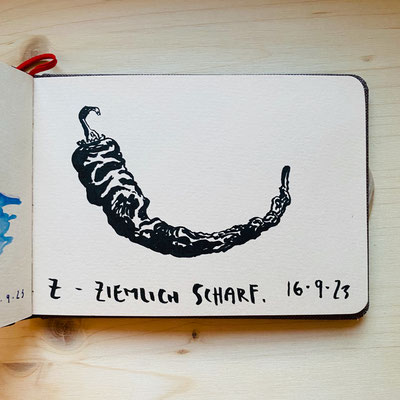 .9.23
Z - ZIEMLICH SCHARF. 16.9.23